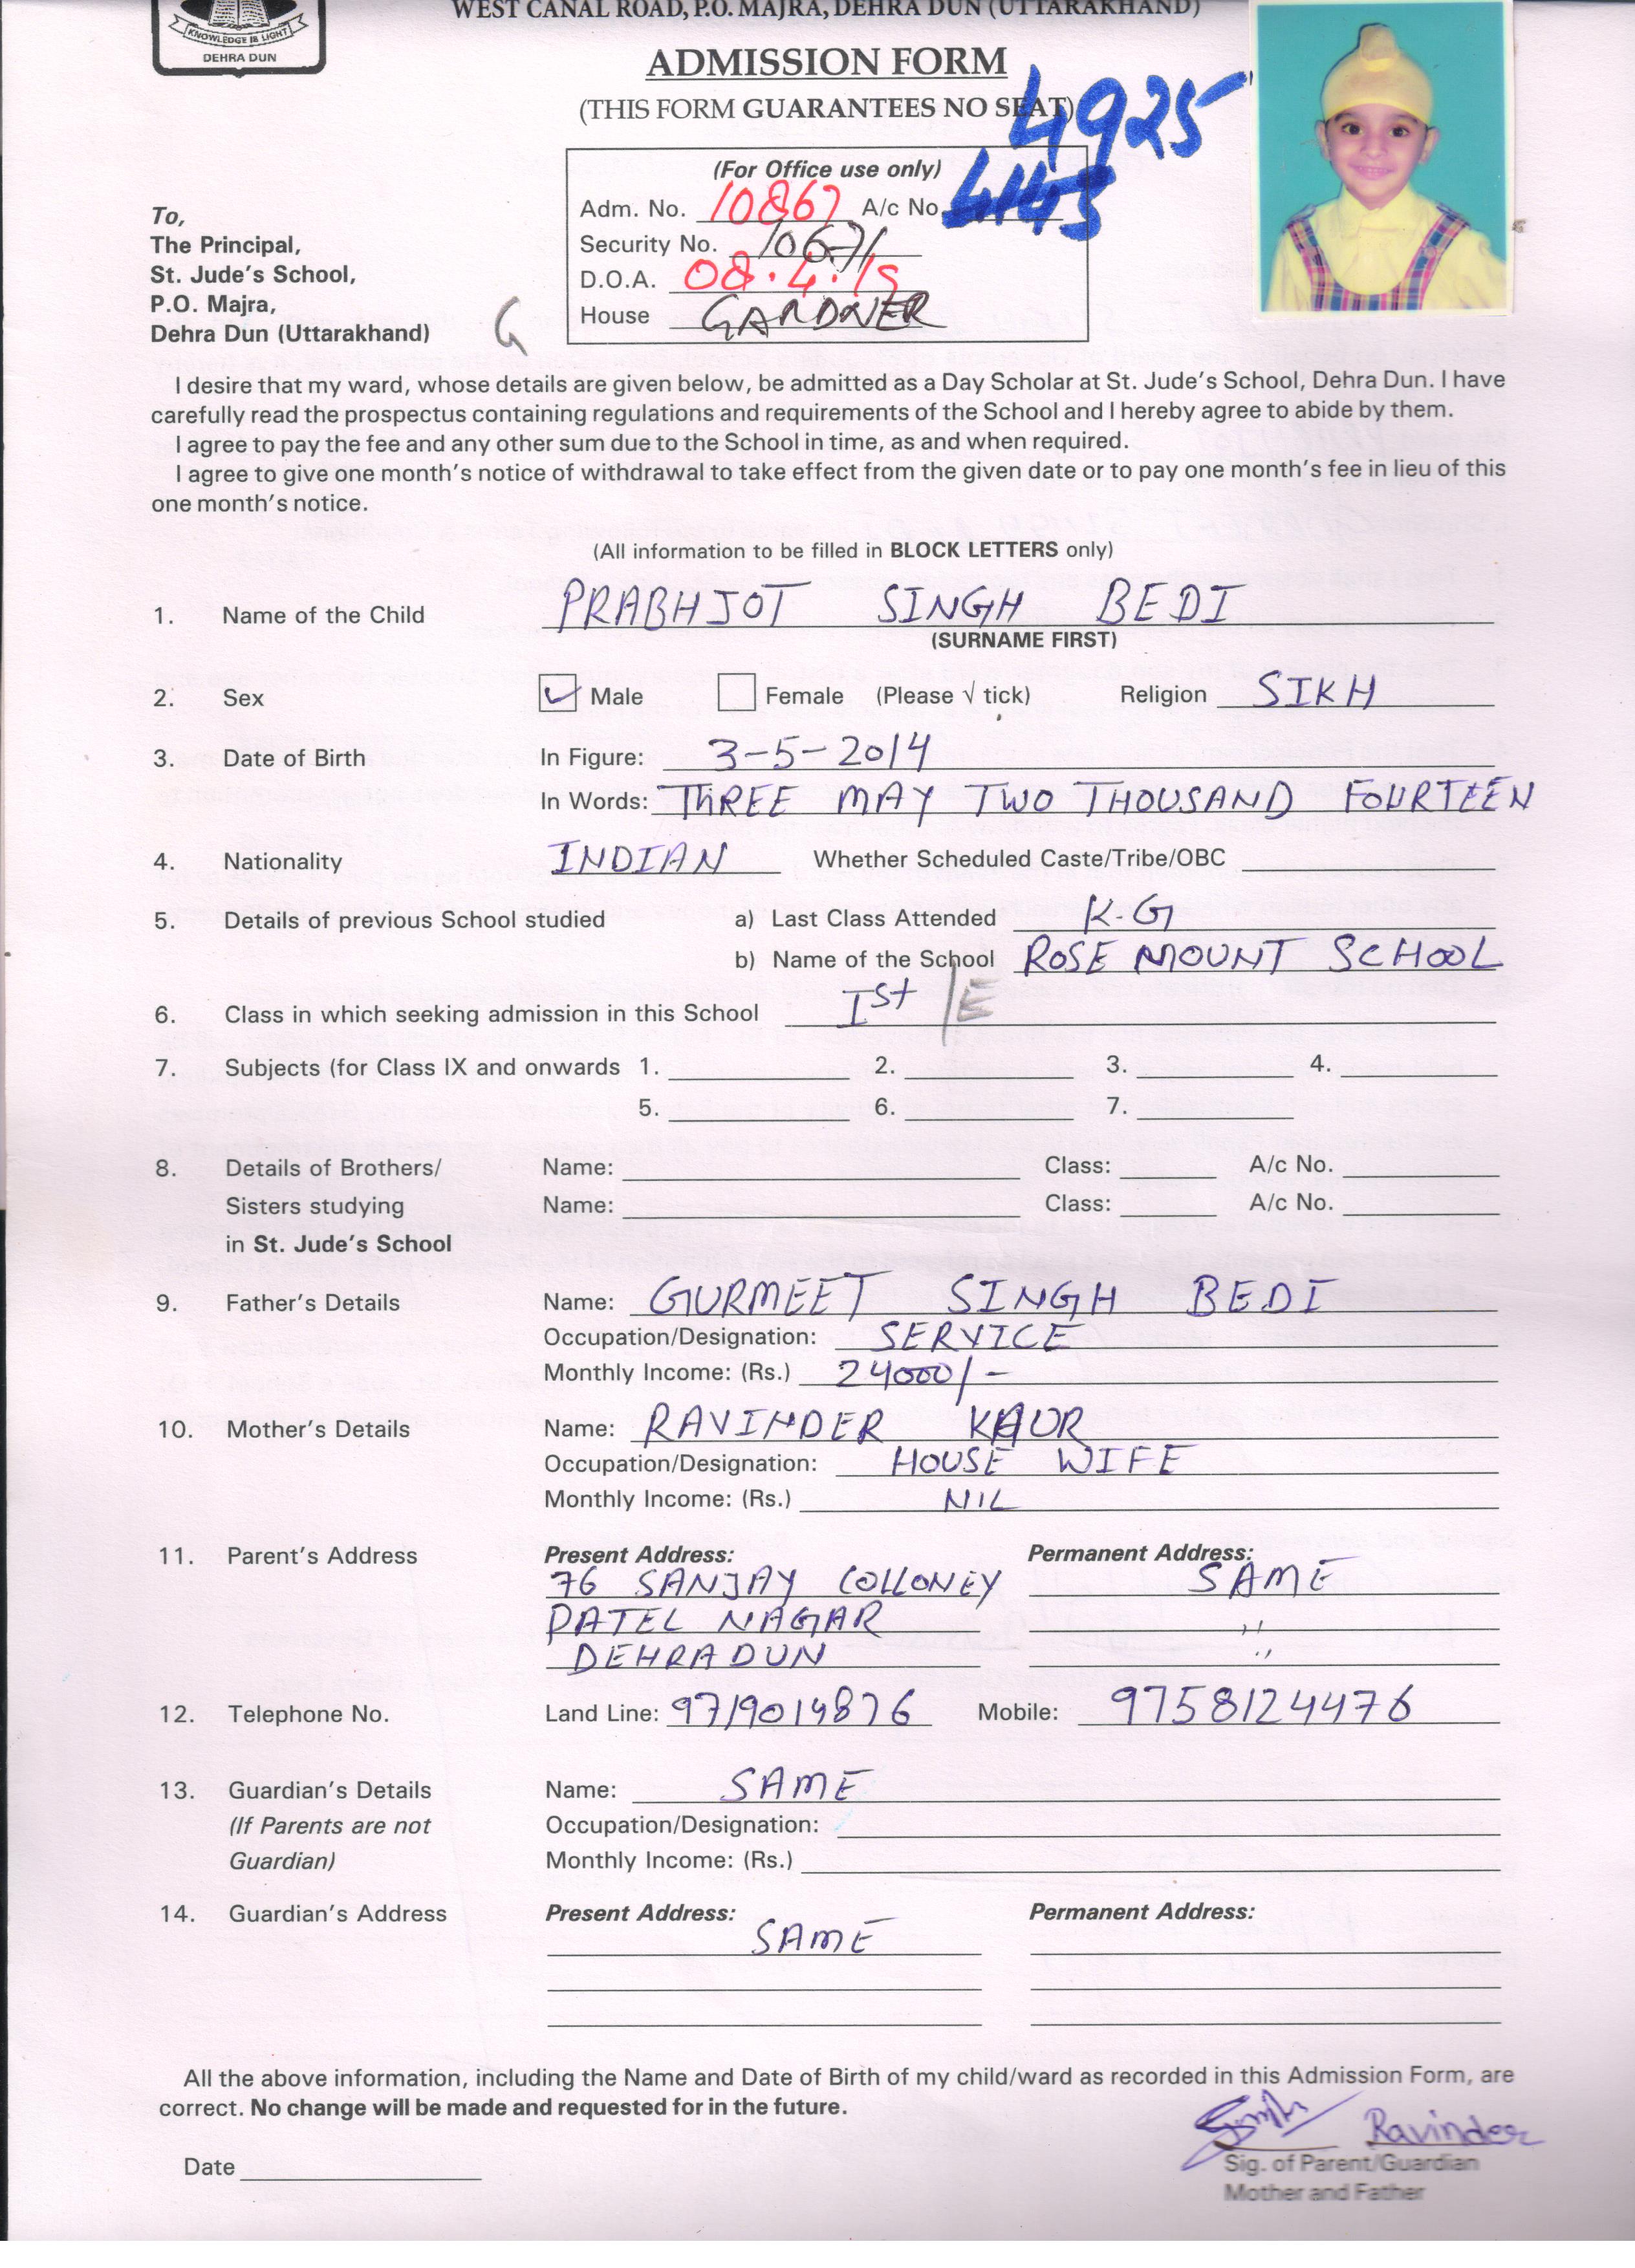 WEST CANAL ROAD, P.O. MAJRA, DEHRA DUN (UTTARAKHAND)
KNOWLEDGE IS LIGHT
DEHRA DUN
ADMISSION FORM
(THIS FORM GUARANTEES NO SEAT)
4925
(For Office use only)
Adm. No. 10867 A/c No.
Security No. 10671
D.O.A. 08.4.19
House GARDNER
To,
The Principal,
St. Jude's School,
P.O. Majra,
Dehra Dun (Uttarakhand)
G
I desire that my ward, whose details are given below, be admitted as a Day Scholar at St. Jude's School, Dehra Dun. I have
carefully read the prospectus containing regulations and requirements of the School and I hereby agree to abide by them.
I agree to pay the fee and any other sum due to the School in time, as and when required.
I agree to give one month's notice of withdrawal to take effect from the given date or to pay one month's fee in lieu of this
one month's notice.
(All information to be filled in BLOCK LETTERS only)
1. Name of the Child PRABHJOT SINGH BEDI
(SURNAME FIRST)
2. Sex Male Female (Please √ tick) Religion SIKH
3. Date of Birth In Figure: 3-5-2014
In Words: THREE MAY TWO THOUSAND FOURTEEN
4. Nationality INDIAN Whether Scheduled Caste/Tribe/OBC
5. Details of previous School studied a) Last Class Attended K-G
b) Name of the School ROSE MOUNT SCHOOL
6. Class in which seeking admission in this School Ist /E
7. Subjects (for Class IX and onwards 1. 2. 3. 4.
5. 6. 7.
8. Details of Brothers/ Name: Class: A/c No.
Sisters studying Name: Class: A/c No.
in St. Jude's School
9. Father's Details Name: GURMEET SINGH BEDI
Occupation/Designation: SERVICE
Monthly Income: (Rs.) 24000/-
10. Mother's Details Name: RAVINDER KAUR
Occupation/Designation: HOUSE WIFE
Monthly Income: (Rs.) NIL
11. Parent's Address Present Address: Permanent Address:
76 SANJAY COLLONEY SAME
PATEL NAGAR "
DEHRADUN "
12. Telephone No. Land Line: 9719014876 Mobile: 9758124476
13. Guardian's Details Name: SAME
(If Parents are not Occupation/Designation:
Guardian) Monthly Income: (Rs.)
14. Guardian's Address Present Address: Permanent Address:
SAME
All the above information, including the Name and Date of Birth of my child/ward as recorded in this Admission Form, are
correct. No change will be made and requested for in the future.
Ravinder
Date Sig. of Parent/Guardian
Mother and Father